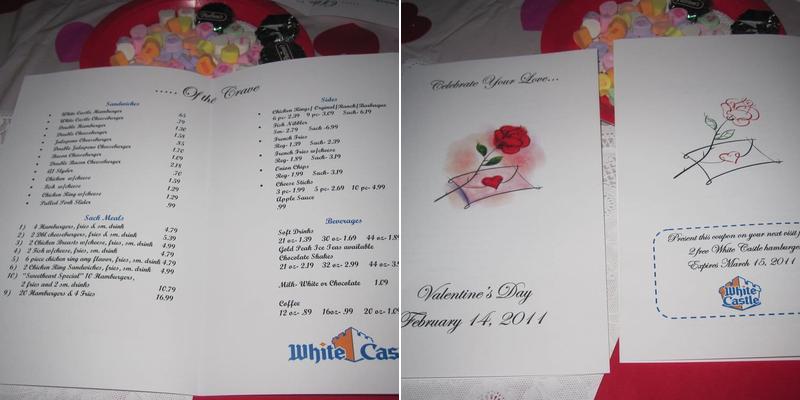 ..... Of the Crave
Sandwiches
White Castle Hamburger .65
White Castle Cheeseburger .79
Double Hamburger 1.30
Double Cheeseburger 1.58
Jalapeno Cheeseburger .85
Double Jalapeno Cheeseburger 1.70
Bacon Cheeseburger 1.09
Double Bacon Cheeseburger 2.18
A1 Slyder .70
Chicken w/cheese 1.59
Fish w/cheese 1.29
Chicken Ring w/cheese 1.29
Pulled Pork Slider .99
Sack Meals
1) 4 Hamburgers, fries & sm. drink 4.79
2) 2 Dbl cheeseburgers, fries & sm. drink 5.39
3) 2 Chicken Breasts w/cheese, fries, sm. drink 4.99
4) 2 Fish w/cheese, fries, sm. drink 4.79
5) 6 piece chicken ring any flavor, fries, sm. drink 4.79
6) 2 Chicken Ring Sandwiches, fries, sm. drink 4.99
10) "Sweetheart Special" 10 Hamburgers,
2 fries and 2 sm. drinks 10.79
9) 20 Hamburgers & 4 Fries 16.99
Sides
Chicken Rings/ Orginal/Ranch/Barbague
6 pc- 2.39 9 pc- 3.09 Sack- 6.19
Fish Nibbler
Sm- 2.79 Sack -6.99
French Fries
Reg- 1.39 Sack- 2.39
French Fries w/cheese
Reg- 1.89 Sack- 3.19
Onion Chips
Reg- 1.99 Sack- 3.19
Cheese Sticks
3 pc- 1.99 5 pc- 2.69 10 pc- 4.99
Apple Sauce
.99
Beverages
Soft Drinks
21 oz- 1.39 30 oz- 1.69 44 oz- 1.8
Gold Peak Ice Teas available
Chocolate Shakes
21 oz- 2.19 32 oz- 2.99 44 oz- 3.
Milk- White or Chocolate 1.09
Coffee
12 oz- .89 16oz- .99 20 oz- 1.0
White Cas
Celebrate Your Love...
Valentine's Day
February 14, 2011
Present this coupon on your next visit f
2 free White Castle hamburge
Expires March 15, 2011
White Castle